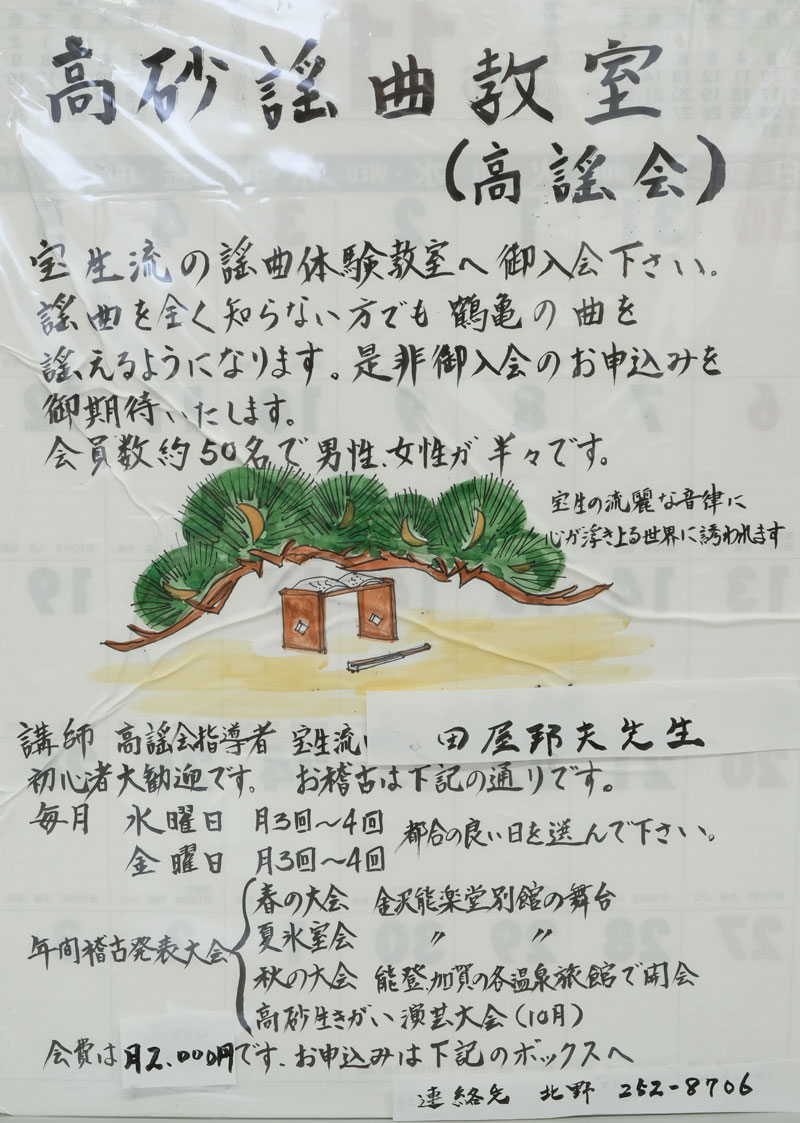 高砂謡曲教室
(高謡会)
宝生流の謡曲体験教室へ御入会下さい。
謡曲を全く知らない方でも鶴亀の曲を
謡えるようになります。是非御入会のお申込みを
御期待いたします。
会員数約50名で男性、女性が半々です。
宝生の流麗な音律に
心が浮き上る世界に誘われます
講師 高謡会指導者 宝生流 田屋邦夫先生
初心者大歓迎です。 お稽古は下記の通りです。
毎月 水曜日 月3回~4回 都合の良い日を選んで下さい。
金曜日 月3回~4回
年間稽古発表大会
春の大会 金沢能楽堂別館の舞台
夏氷室会 〃 〃
秋の大会 能登、加賀の各温泉旅館で開会
高砂生きがい演芸大会(10月)
会費は月2.000円です、お申込みは下記のボックスへ
連絡先 北野 252-8706